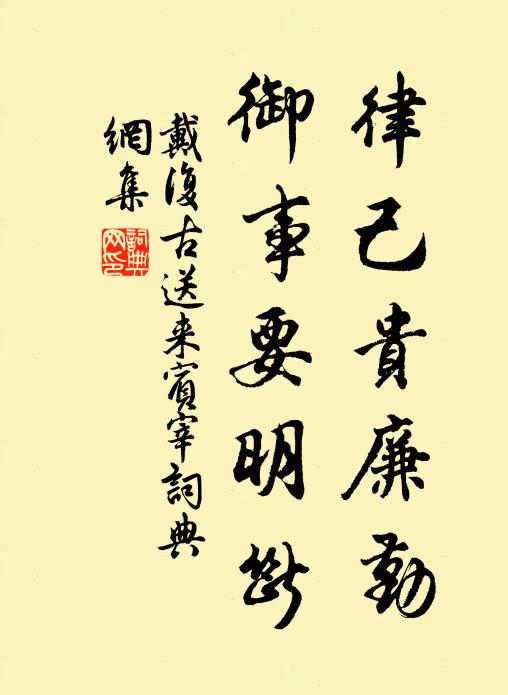 律己貴廉勤
御事要明斷
戴復古送来賓宰詞典
網集
詞典
网印